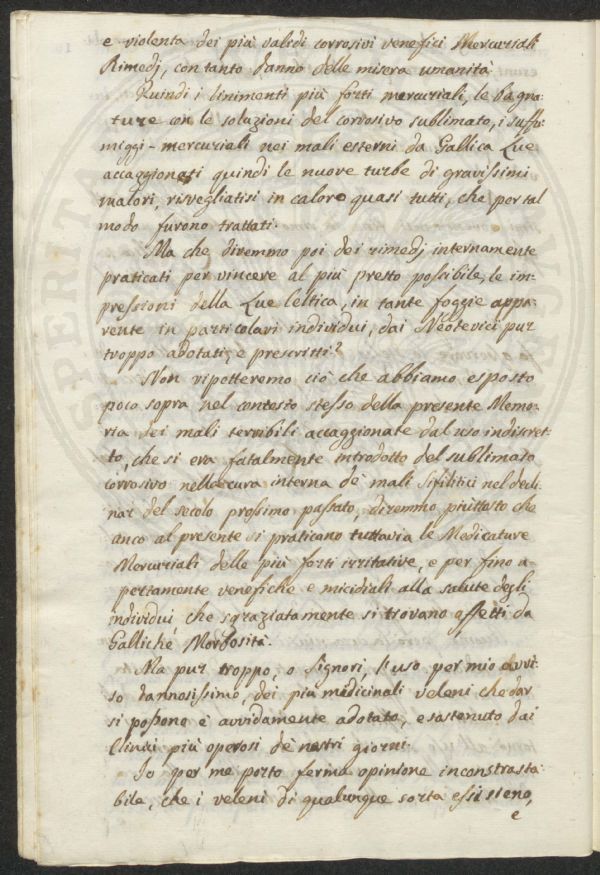 e violenta dei più validi corrosivi venefici Mercuriali
Rimedj, con tanto danno della misera umanità
Quindi i linimenti più forti mercuriali, le bagna-
ture con le soluzioni del corrosivo sublimato, i suffu-
miggi-mercuriali nei mali esterni da Gallica Lue
accaggionati quindi le nuove turbe di gravissimi
malori, risvegliatisi in calore quasi tutti, che per tal
modo furono trattati.
Ma che diremmo poi dei rimedj internamente
praticati per vincere al più presto possibile, le im-
pressioni della Lue Celtica, in tante foggie appa-
rente in particolari individui, dai Neoterici pur
troppo adotati, e prescritti?
Non ripotteremo ciò che abbiamo esposto
poco sopra nel contesto stesso della presente Memo-
ria dei mali terribili accaggionate dal uso indiscret-
to, che si era fatalmente introdotto del sublimato
corrosivo nella cura interna de mali Sifilitici nel decli-
nar del secolo prossimo passato, diremmo piuttosto che
anco al presente si praticano tuttavia le Medicature
Mercuriali delle più forti irritative, e per fino a-
pertamente venefiche e micidiali alla salute degli
individui, che sgraziatamente si trovano affetti da
Galliche Morbosità.
Ma pur troppo, o Signori, l'uso per mio avvi-
so dannosissimo, dei più medicinali veleni che dar
si possono è avvidamente adotato, e sostenuto dai
Clinici più operosi de nostri giorni.
Io per me porto ferma opinione inconstrasta-
bile, che i veleni di qualunque sorta essi sieno,
e
SPERITA